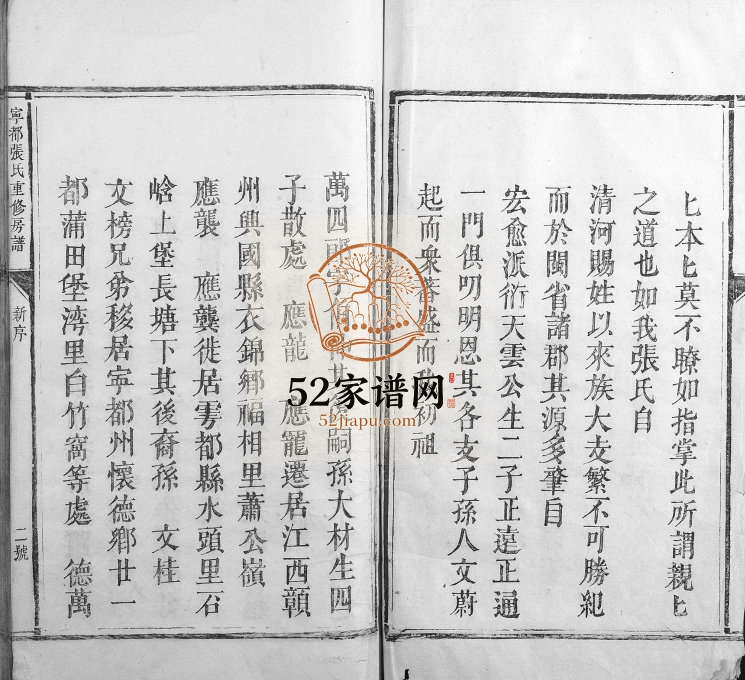 匕本匕莫不瞭如指掌此所謂親匕
之道也如我張氏自
清河賜姓以來族大支繁不可勝紀
而於閩省諸郡其源多肇自
宏愈派衍天雲公生二子正遠正通
一門俱叨明恩其各支子孫人文蔚
起而衆蕃盛而初祖
萬四郎字伯其嗣孫大材生四
子散處 應龍 應寵遷居江西贛
州興國縣衣錦鄉福相里蕭公嶺
應襲 應龔徙居雩都縣水頭里石
峆上堡長塘下其後裔孫 文桂
文榜兄弟移居寧都州懷德鄉廿一
都蒲田堡湾里白竹窩等處 德萬
寧都張氏重修房譜
新序
二號
52家谱网
52jiapu.com